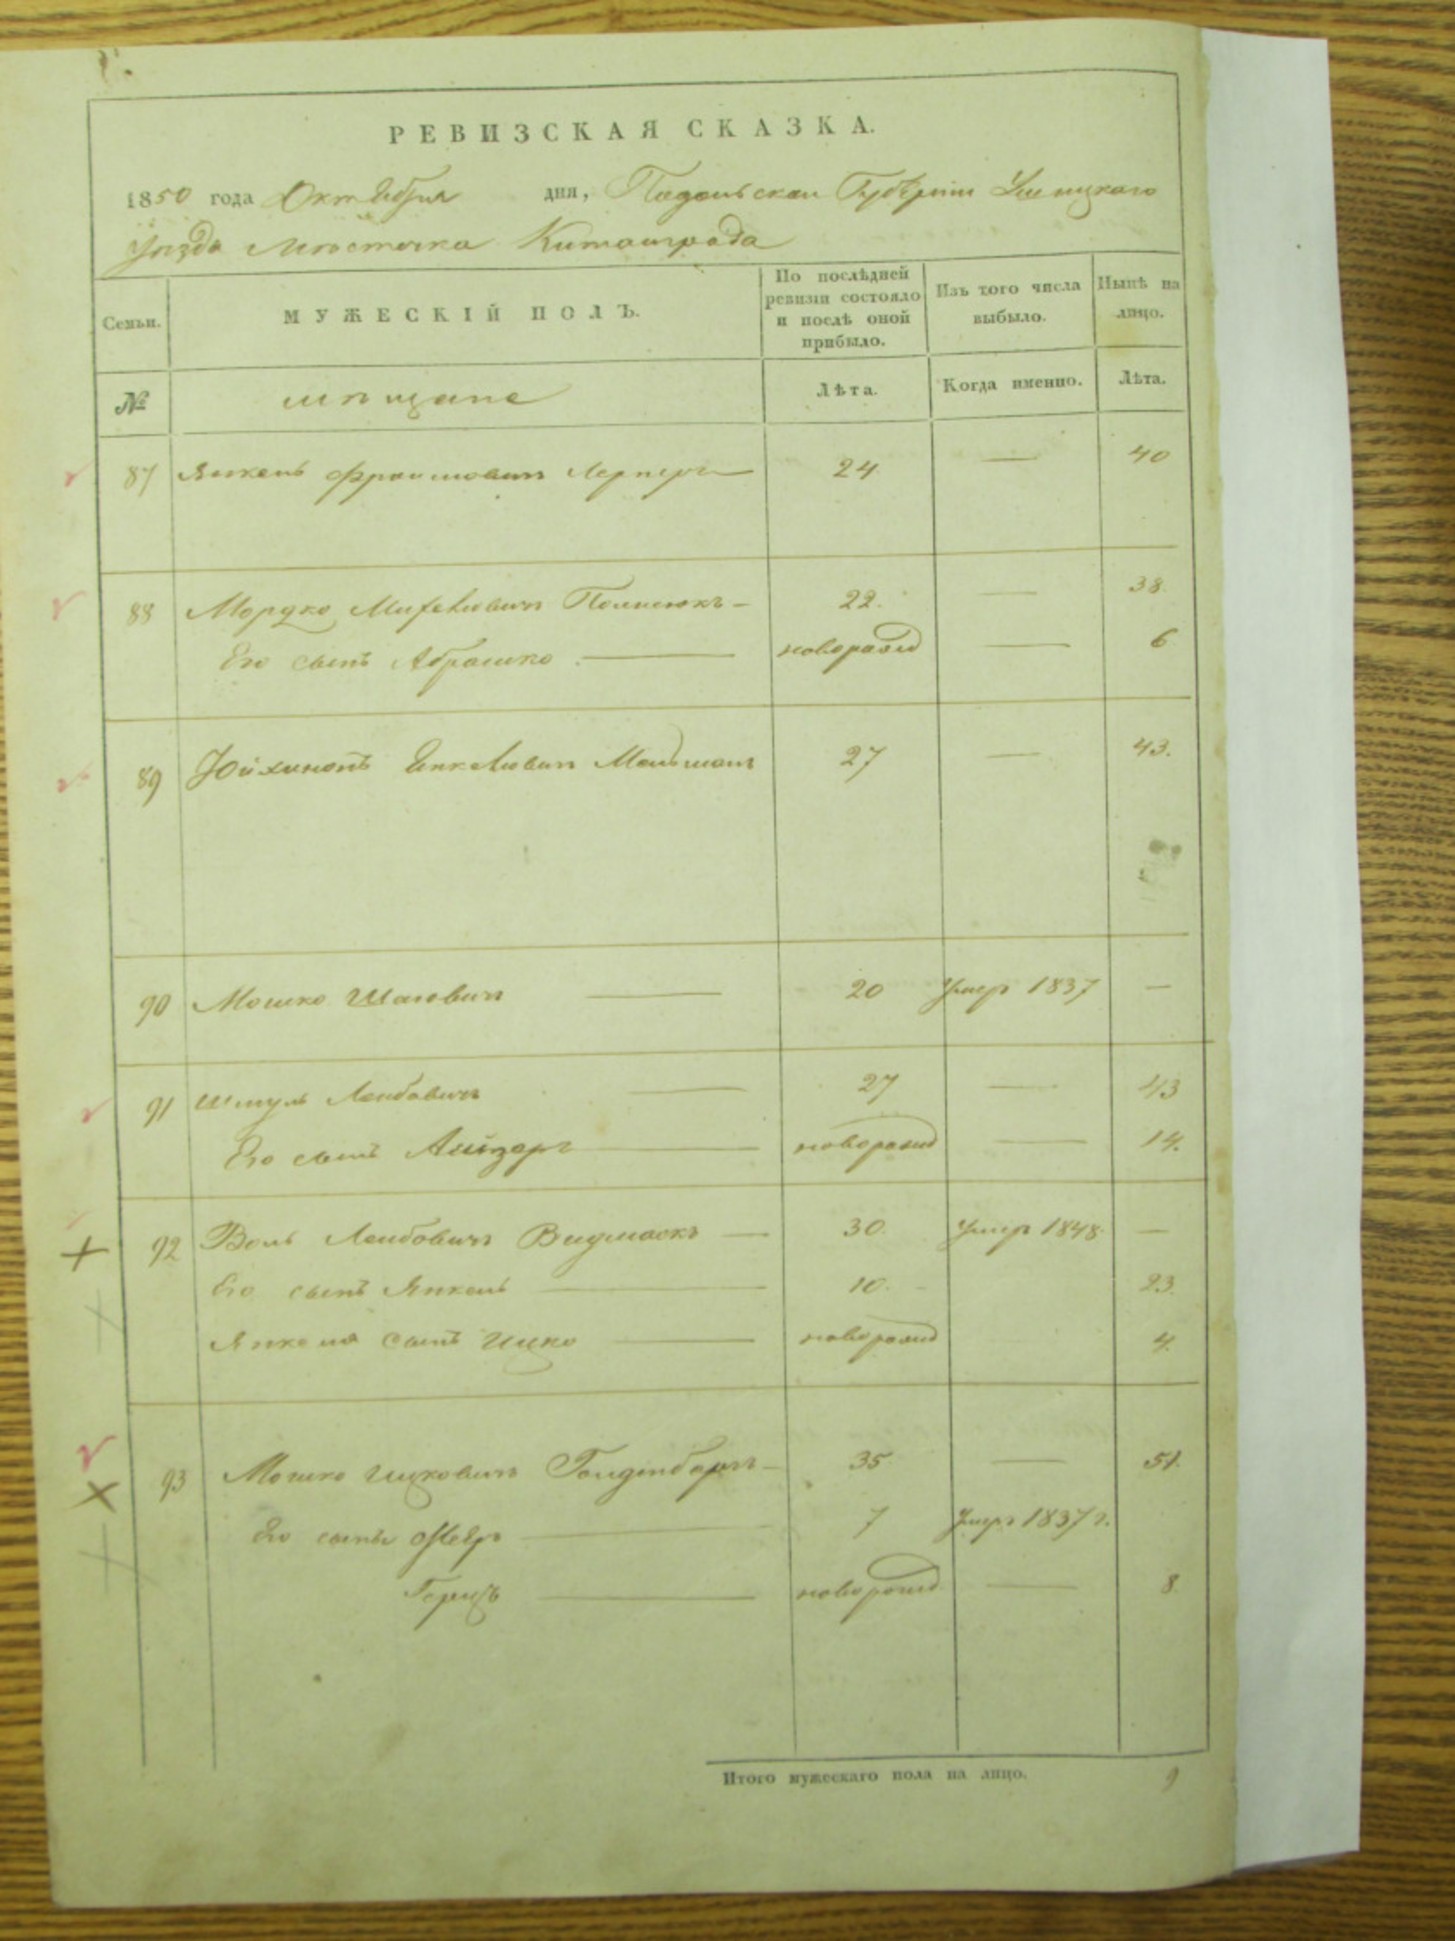 РЕВИЗСКАЯ СКАЗКА.
1850 года Октября дня, Подольской Губерніи Ушицкаго
уѣзда Мѣстечка Китайграда
Семьи.
МУЖЕСКІЙ ПОЛЪ.
По послѣдней ревизіи состояло и послѣ оной прибыло.
Изъ того числа выбыло.
Нынѣ на лицо.
№ мѣщане Лѣта. Когда именно. Лѣта.
87 Янкель Фроимовичъ Лернеръ 24 — 40
88 Мордко Михелювичъ 22. — 38.
Его сынъ Абрамко — новорожд — 6
89 Юйхинонъ 27 — 43.
90 Мошко — 20 умеръ 1837 —
91 Шмуль Лейбовичъ — 27 — 43
Его сынъ — новорожд — 14.
92 Воль Лейбовичъ — 30. умеръ 1848. —
Его сынъ Янкель — 10. 23
Янкеля сынъ Ицко — новорожд 4.
93 Мошко Ицковичъ Голденбергъ — 35 — 51.
Его сыны — 7 умеръ 1837 г.
Гершъ — новорожд — 8.
Итого мужескаго пола на лицо. 9